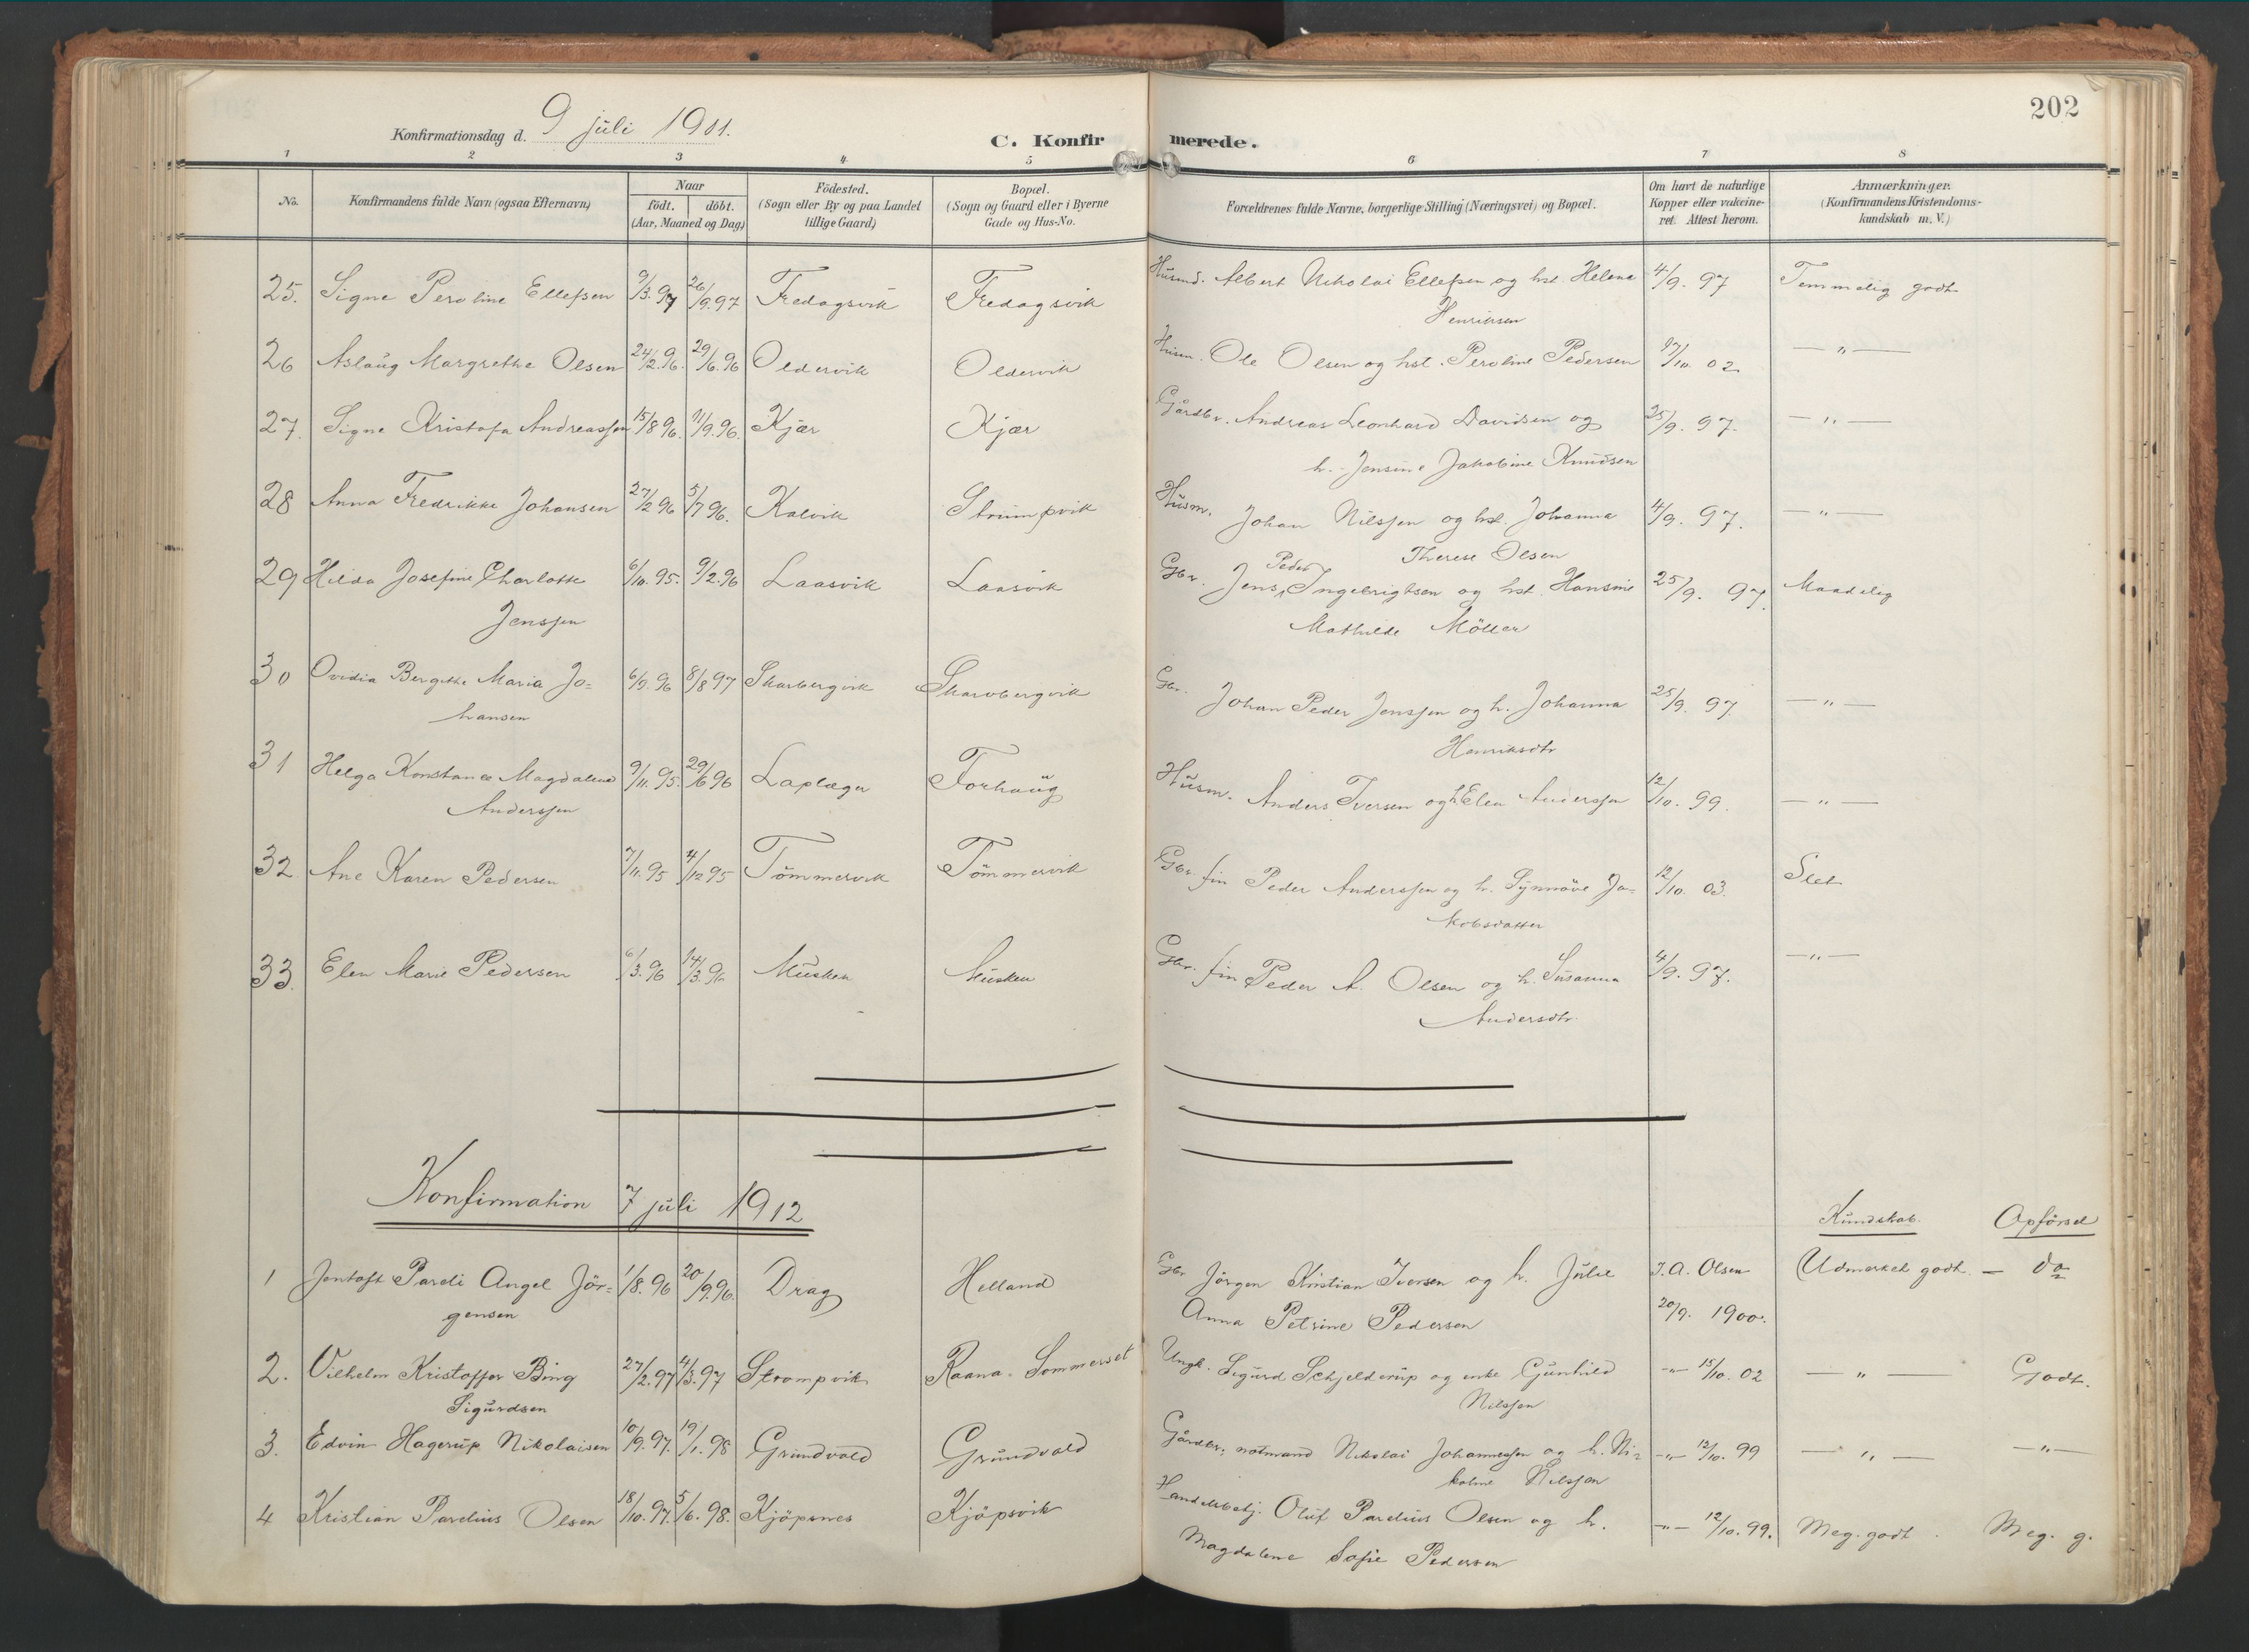 202
Konfirmationsdag d. 9 juli 1911.
C. Konfirmerede.
1 2 3 4 5 6 7 8
No.
Konfirmandens fulde Navn (ogsaa Efternavn)
Naar
født. døbt.
(Aar, Maaned og Dag)
Fødested.
(Sogn eller By og paa Landet
tillige Gaard)
Bopæl.
(Sogn og Gaard eller i Byerne
Gade og Hus-No.
Forældrenes fulde Navne, borgerlige Stilling (Næringsvei) og Bopæl.
Om havt de naturlige
Kopper eller vakcine-
ret. Attest herom.
Anmærkninger.
(Konfirmandens Kristendoms-
kundskab m. V.)
25. Signe Peroline Ellefsen 9/3.97 26/9.97 Fredagsvik Fredagsvik Husmd. Albert Nikolai Ellefsen og hst. Helena 4/9. 97 Temmelig godt
Henriksen
26 Aslaug Margrethe Olsen 24/2.96. 29/6.96 Oldervik Oldervik Husm. Ole Olsen og hst. Peroline Pedersen 17/10. 02 — „ —
27. Signe Kristofa Andreassen 15/8 96. 11/9.96. Kjær Kjær Gårdbr. Andreas Leonhard Davidsen og 25/9. 97. — „ —
h. Jensine Jakobine Knudsen
28 Anna Fredrikke Johansen 27/2 96 5/7 96. Kalvik Strumpvik Husm. Johan Nilssen og hst. Johanna 4/9. 97. — „ —
Therese Olsen
29 Hilda Josefine Charlotte 6/10. 95. 9/2.96 Laasvik Laasvik Gbr. Jens Peder Ingebrigtsen og hst. Hansine 25/9. 97. Maadelig
Jenssen Mathilde Möller
30 Ovidia Bergithe Maria Jo= 6/9. 96 8/8 97 Skarbergvik Skarvbergvik Gbr. Johan Peder Jenssen og h. Johanna 25/9. 97. — „ —
hansen Henriksdtr
31 Helga Konstance Magdalene 9/11. 95. 29/6 96 Laplæger Forhaug Husm. Anders Iversen og h. Elen Anderssen 12/10. 99. — „ —
Anderssen
32. Ane Karen Pedersen 7/11. 95 4/12 95 Tömmervik Tömmervik Gbr. fin Peder Anderssen og h. Synnöve Ja- 12/10. 03. Slet
kobsdatter
33. Elen Marie Pedersen 6/3. 96 14/3. 96 Musken Musken Gbr. fin Peder A. Olsen og h. Susanna 4/9. 97. — „ —
Andersdtr.
Konfirmation 7 juli 1912
Kundskab. Opförsel
1 Jentoft Pareli Angel Jör= 1/8. 96 20/9.96. Drag Helland Gbr Jörgen Kristian Iversen og h. Julie J. A. Olsen Udmerket godt. — do
gensen Anna Petrine Pedersen 20/9. 1900.
2. Vilhelm Kristoffer Bing 27/2.97 4/3.97 Strompvik Raana. Sommerset Ungk. Sigurd Schjelderup og enke Gunhild —„— 15/10. 02 — „ — Godt.
Sigurdsen Nilssen
3. Edvin Hagerup Nikolaisen 10/9.97. 19/1. 98 Grundvald Grundvald Gårdbr, notmand Nikolai Johannessen og h. Ni= —„— 12/10. 99 — „ — —„—
koline Nilssen
4 Kristian Parelius Olsen 18/10. 97. 5/6. 98. Kjöpsnes Kjöpsvik Handelsbetj. Oluf Parelius Olsen og h. —„— 12/10. 99. Meg. godt. Meg. g.
Magdalene Sofie Pedersen